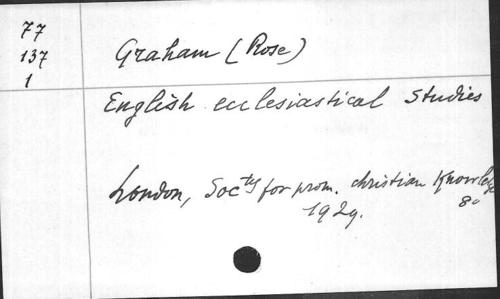 77
137
1
Graham (Rose)
English ecclesiastical Studies
London, Socty for prom. christian Knowledge
8°
1929.